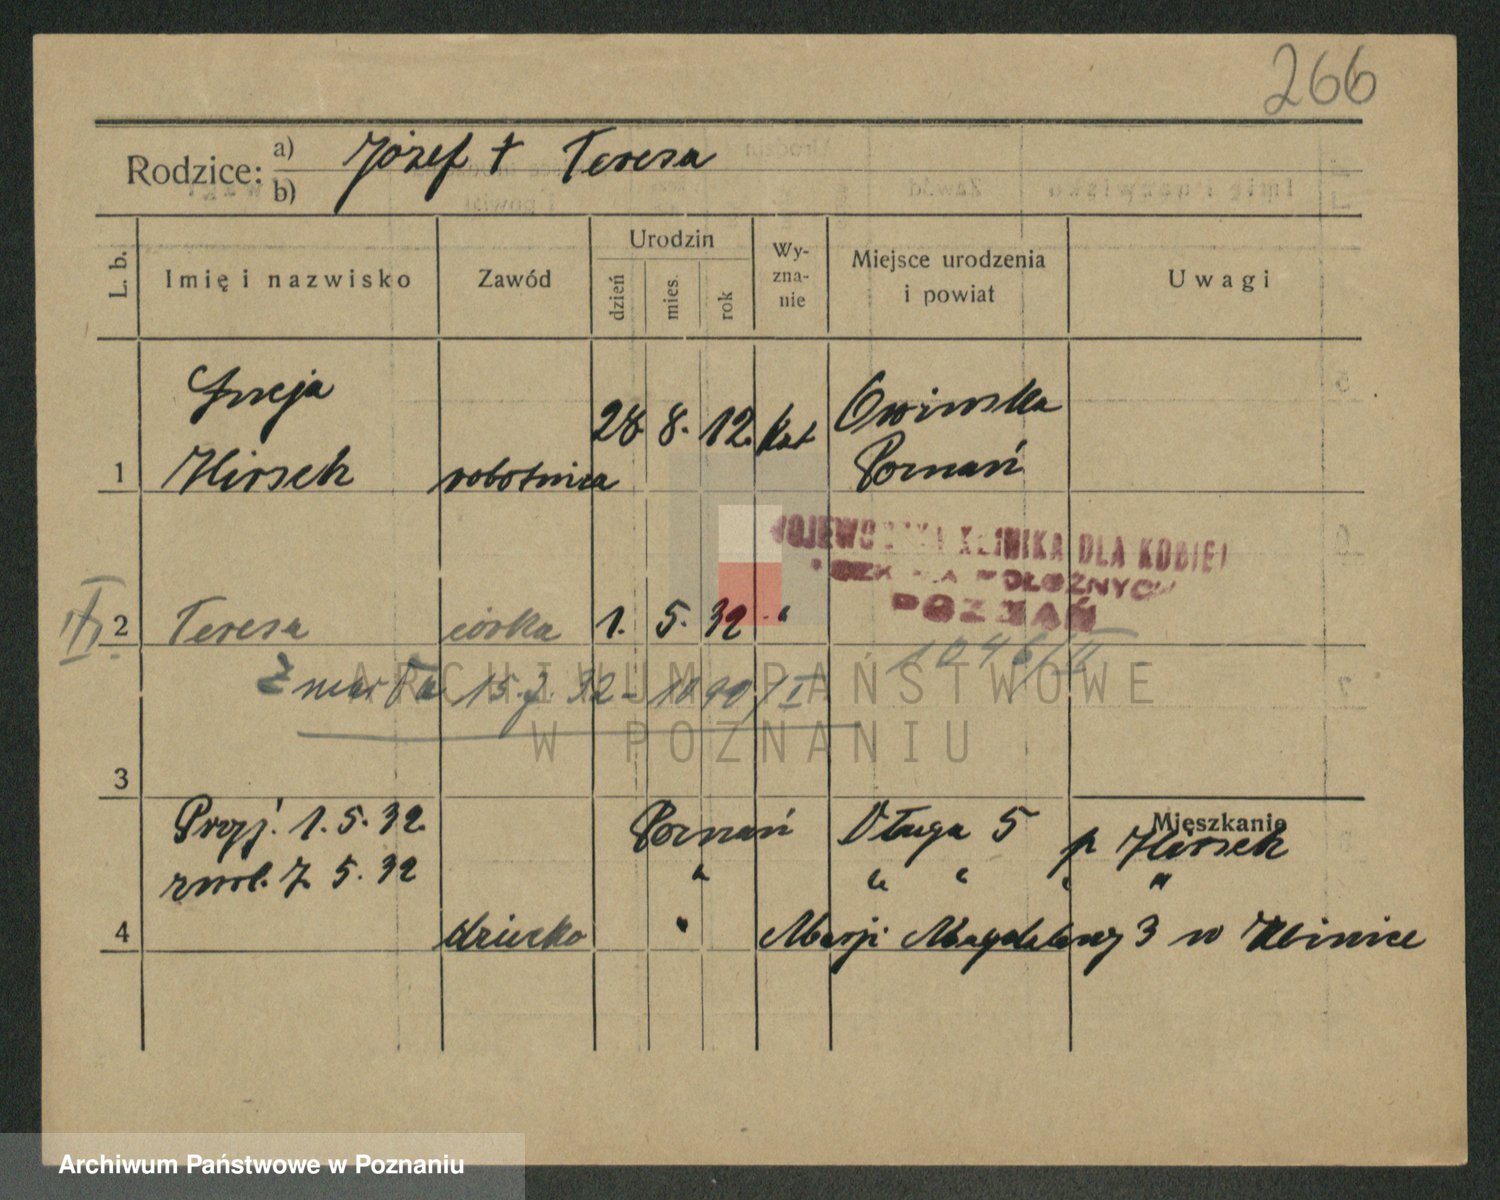 266
Rodzice: a) b) Józef † Teresa
L. b. Imię i nazwisko Zawód Urodzin dzień mies. rok Wy-zna-nie Miejsce urodzenia i powiat Uwagi
Łucja
28. 8. 12. kat Owinska
1 Hirsch robotnica Poznań
WOJEWÓDZKA KLINIKA DLA KOBIET
POŁOŻNYCH
POZNAŃ
2 Teresa córka 1. 5. 32 "
1046/II
Zmarła 15. 7. 32 - 1090/I
3
Mieszkanie
Przyj. 1. 5. 32. Poznań Długa 5 p Hirsch
zwol. 7. 5. 32 " " " " "
4 dziecko " Marji Magdaleny 3 w Klinice
ARCHIWUM PAŃSTWOWE
W POZNANIU
Archiwum Państwowe w Poznaniu